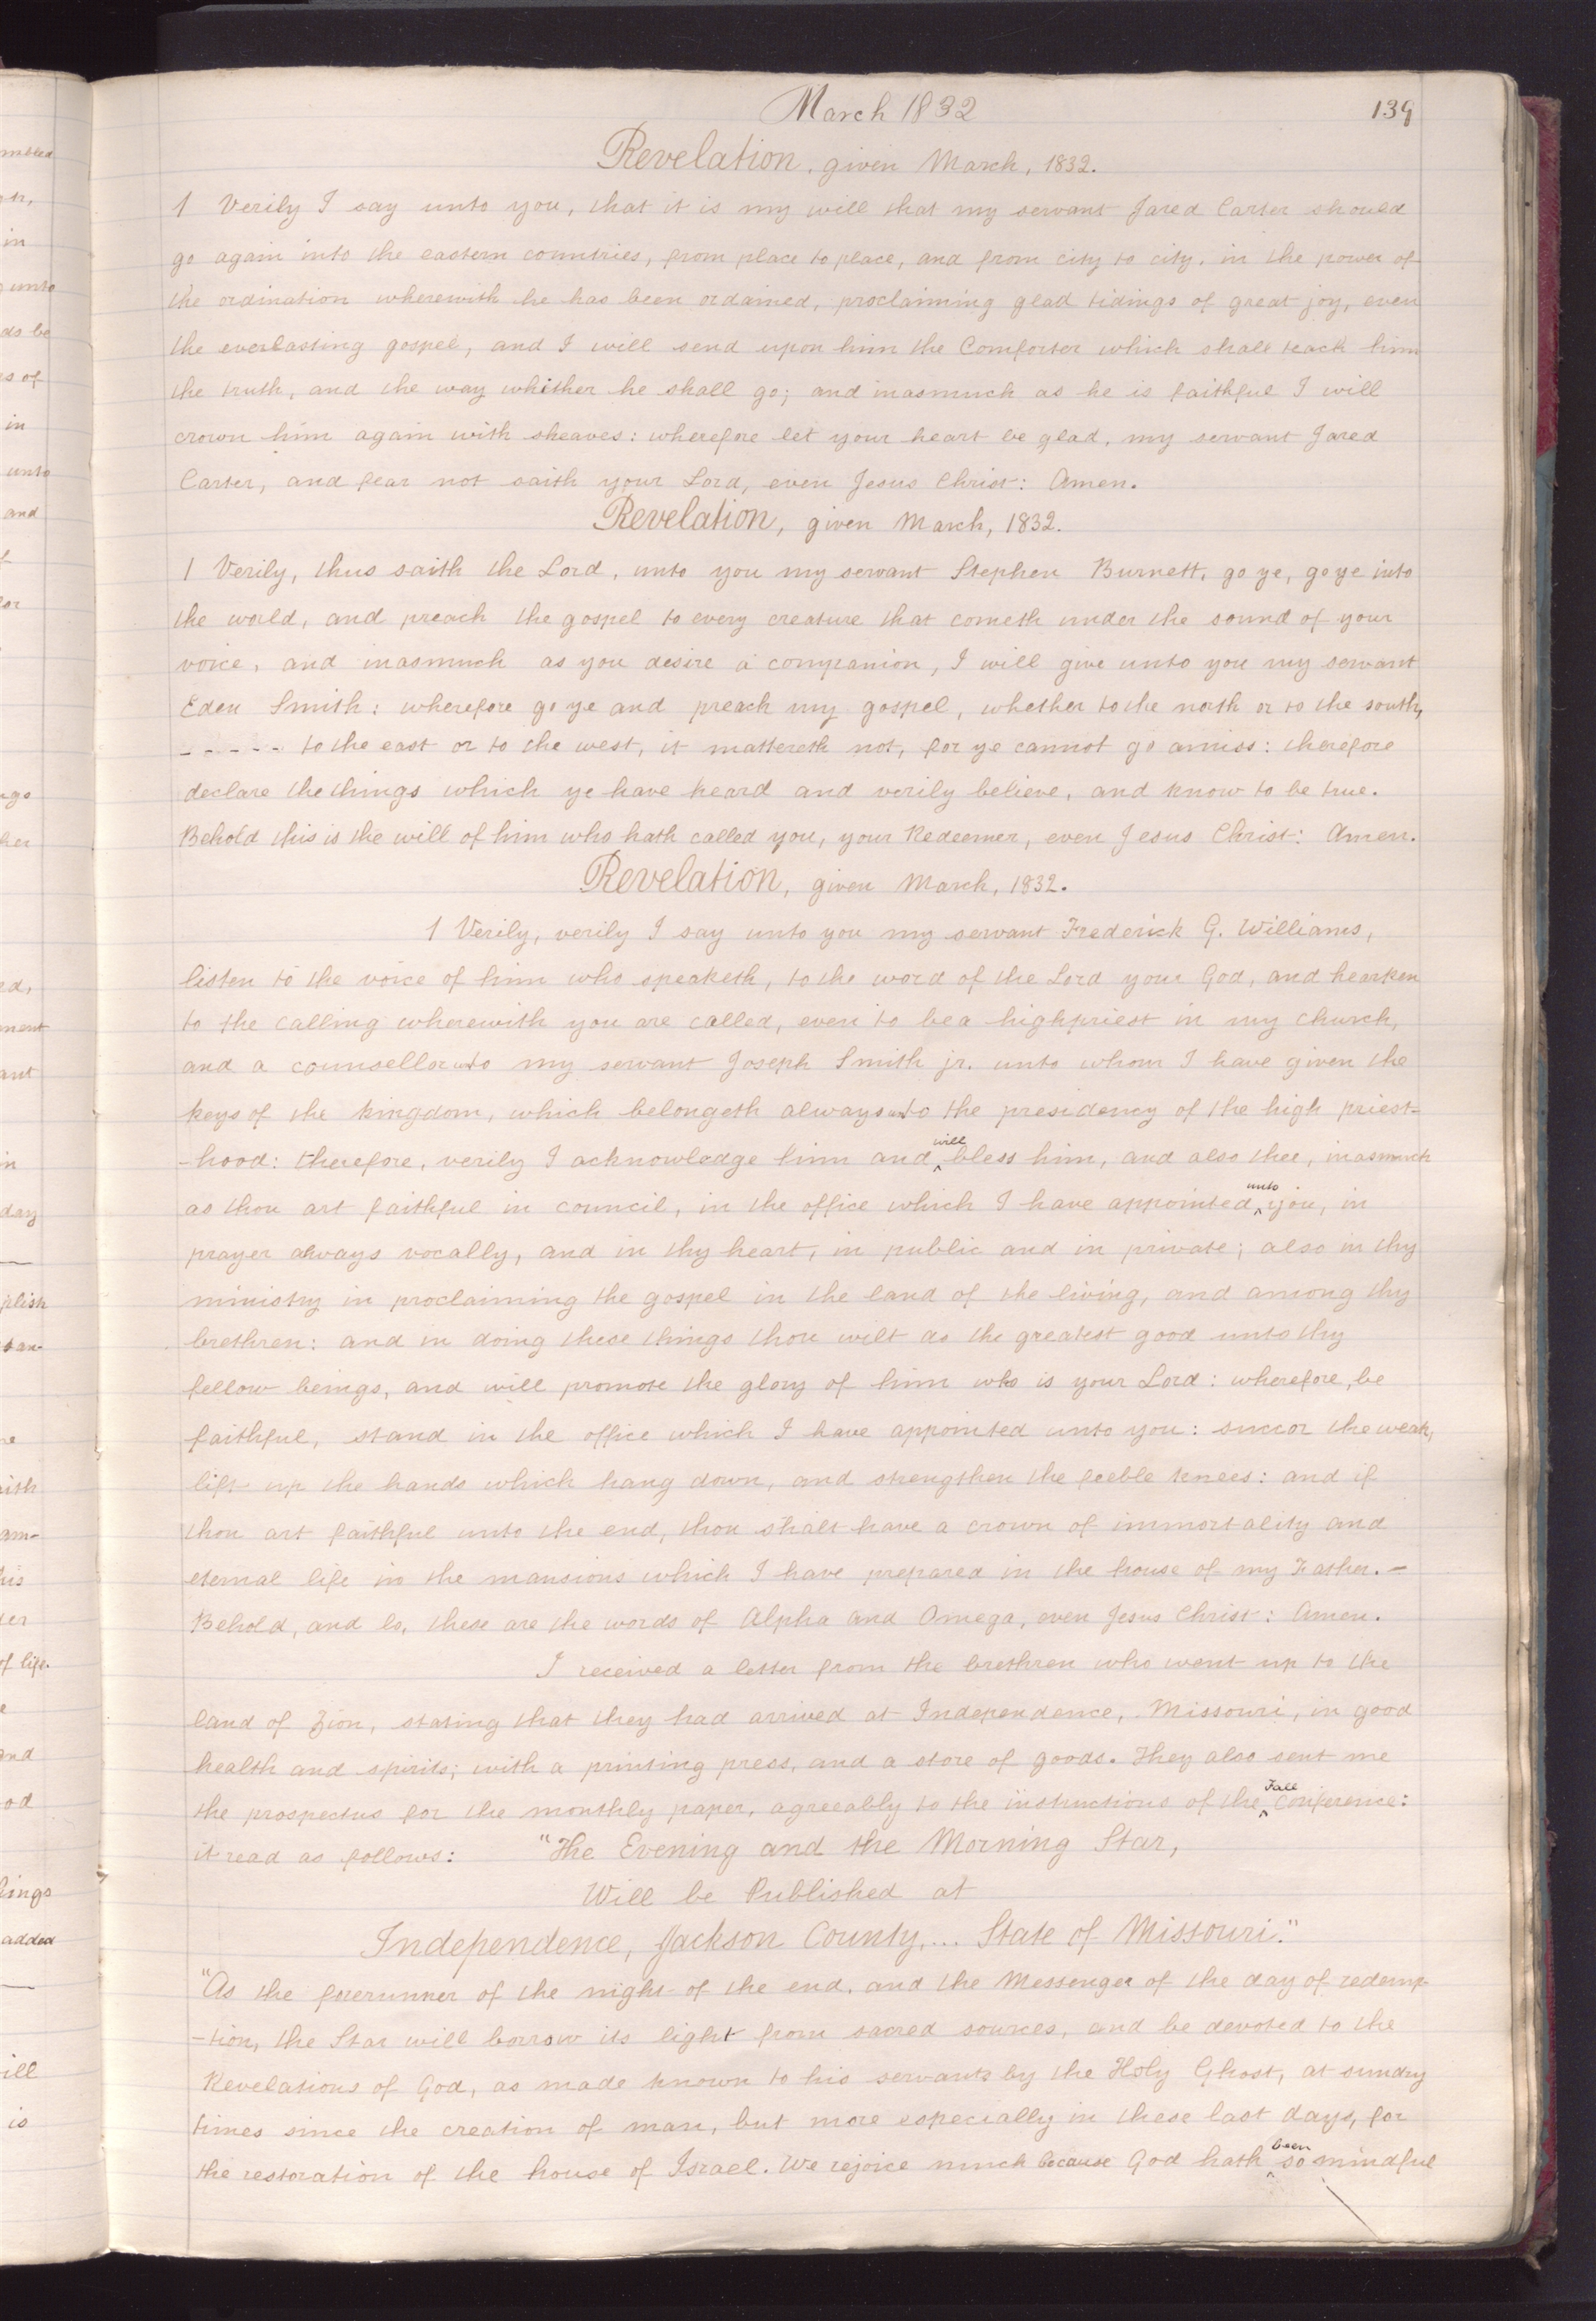 March 1832
139
Revelation, given March, 1832.
1 Verily I say unto you, that it is my will that my servant Jared Carter should
go again into the eastern countries, from place to place, and from city to city, in the power of
the ordination wherewith he has been ordained, proclaiming glad tidings of great joy, even
the everlasting gospel, and I will send upon him the Comforter which shall teach him
the truth, and the way whither he shall go; and inasmuch as he is faithful I will
crown him again with sheaves: wherefore let your heart be glad, my servant Jared
Carter, and fear not saith your Lord, even Jesus Christ: Amen.
Revelation, given March, 1832.
1 Verily, thus saith the Lord, unto you my servant Stephen Burnett, go ye, go ye into
the world, and preach the gospel to every creature that cometh under the sound of your
voice, and inasmuch as you desire a companion, I will give unto you my servant
Eden Smith: wherefore go ye and preach my gospel, whether to the north or to the south,
- - - - - to the east or to the west, it mattereth not, for ye cannot go amiss: therefore
declare the things which ye have heard and verily believe, and know to be true.
Behold this is the will of him who hath called you, your Redeemer, even Jesus Christ: Amen.
Revelation, given March, 1832.
1 Verily, verily I say unto you my servant Frederick G. Williams,
listen to the voice of him who speaketh, to the word of the Lord your God, and hearken
to the calling wherewith you are called, even to be a highpriest in my church,
and a counsellor unto my servant Joseph Smith jr. unto whom I have given the
keys of the kingdom, which belongeth always unto the presidency of the high priest-
-hood: therefore, verily I acknowledge him and will bless him, and also thee, inasmuch
as thou art faithful in council, in the office which I have appointed unto you, in
prayer always vocally, and in thy heart, in public and in private; also in thy
ministry in proclaiming the gospel in the land of the living, and among thy
brethren: and in doing these things thou wilt do the greatest good unto thy
fellow beings, and will promote the glory of him who is your Lord: wherefore, be
faithful, stand in the office which I have appointed unto you: succor the weak,
lift up the hands which hang down, and strengthen the feeble knees: and if
thou art faithful unto the end, thou shalt have a crown of immortality and
eternal life in the mansions which I have prepared in the house of my Father. -
Behold, and lo, these are the words of Alpha and Omega, even Jesus Christ: Amen.
I received a letter from the brethren who went up to the
land of Zion, stating that they had arrived at Independence, Missouri, in good
health and spirits; with a printing press, and a store of goods. They also sent me
the prospectus for the monthly paper, agreeably to the instructions of the Fall conference:
it read as follows: "The Evening and the Morning Star,
Will be Published at
Independence, Jackson County,... State of Missouri."
"As the forerunner of the night of the end, and the Messenger of the day of redemp-
-tion, the Star will borrow its light from sacred sources, and be devoted to the
Revelations of God, as made known to his servants by the Holy Ghost, at sundry
times since the creation of man, but more especially in these last days, for
the restoration of the house of Israel. We rejoice much because God hath been so mindful